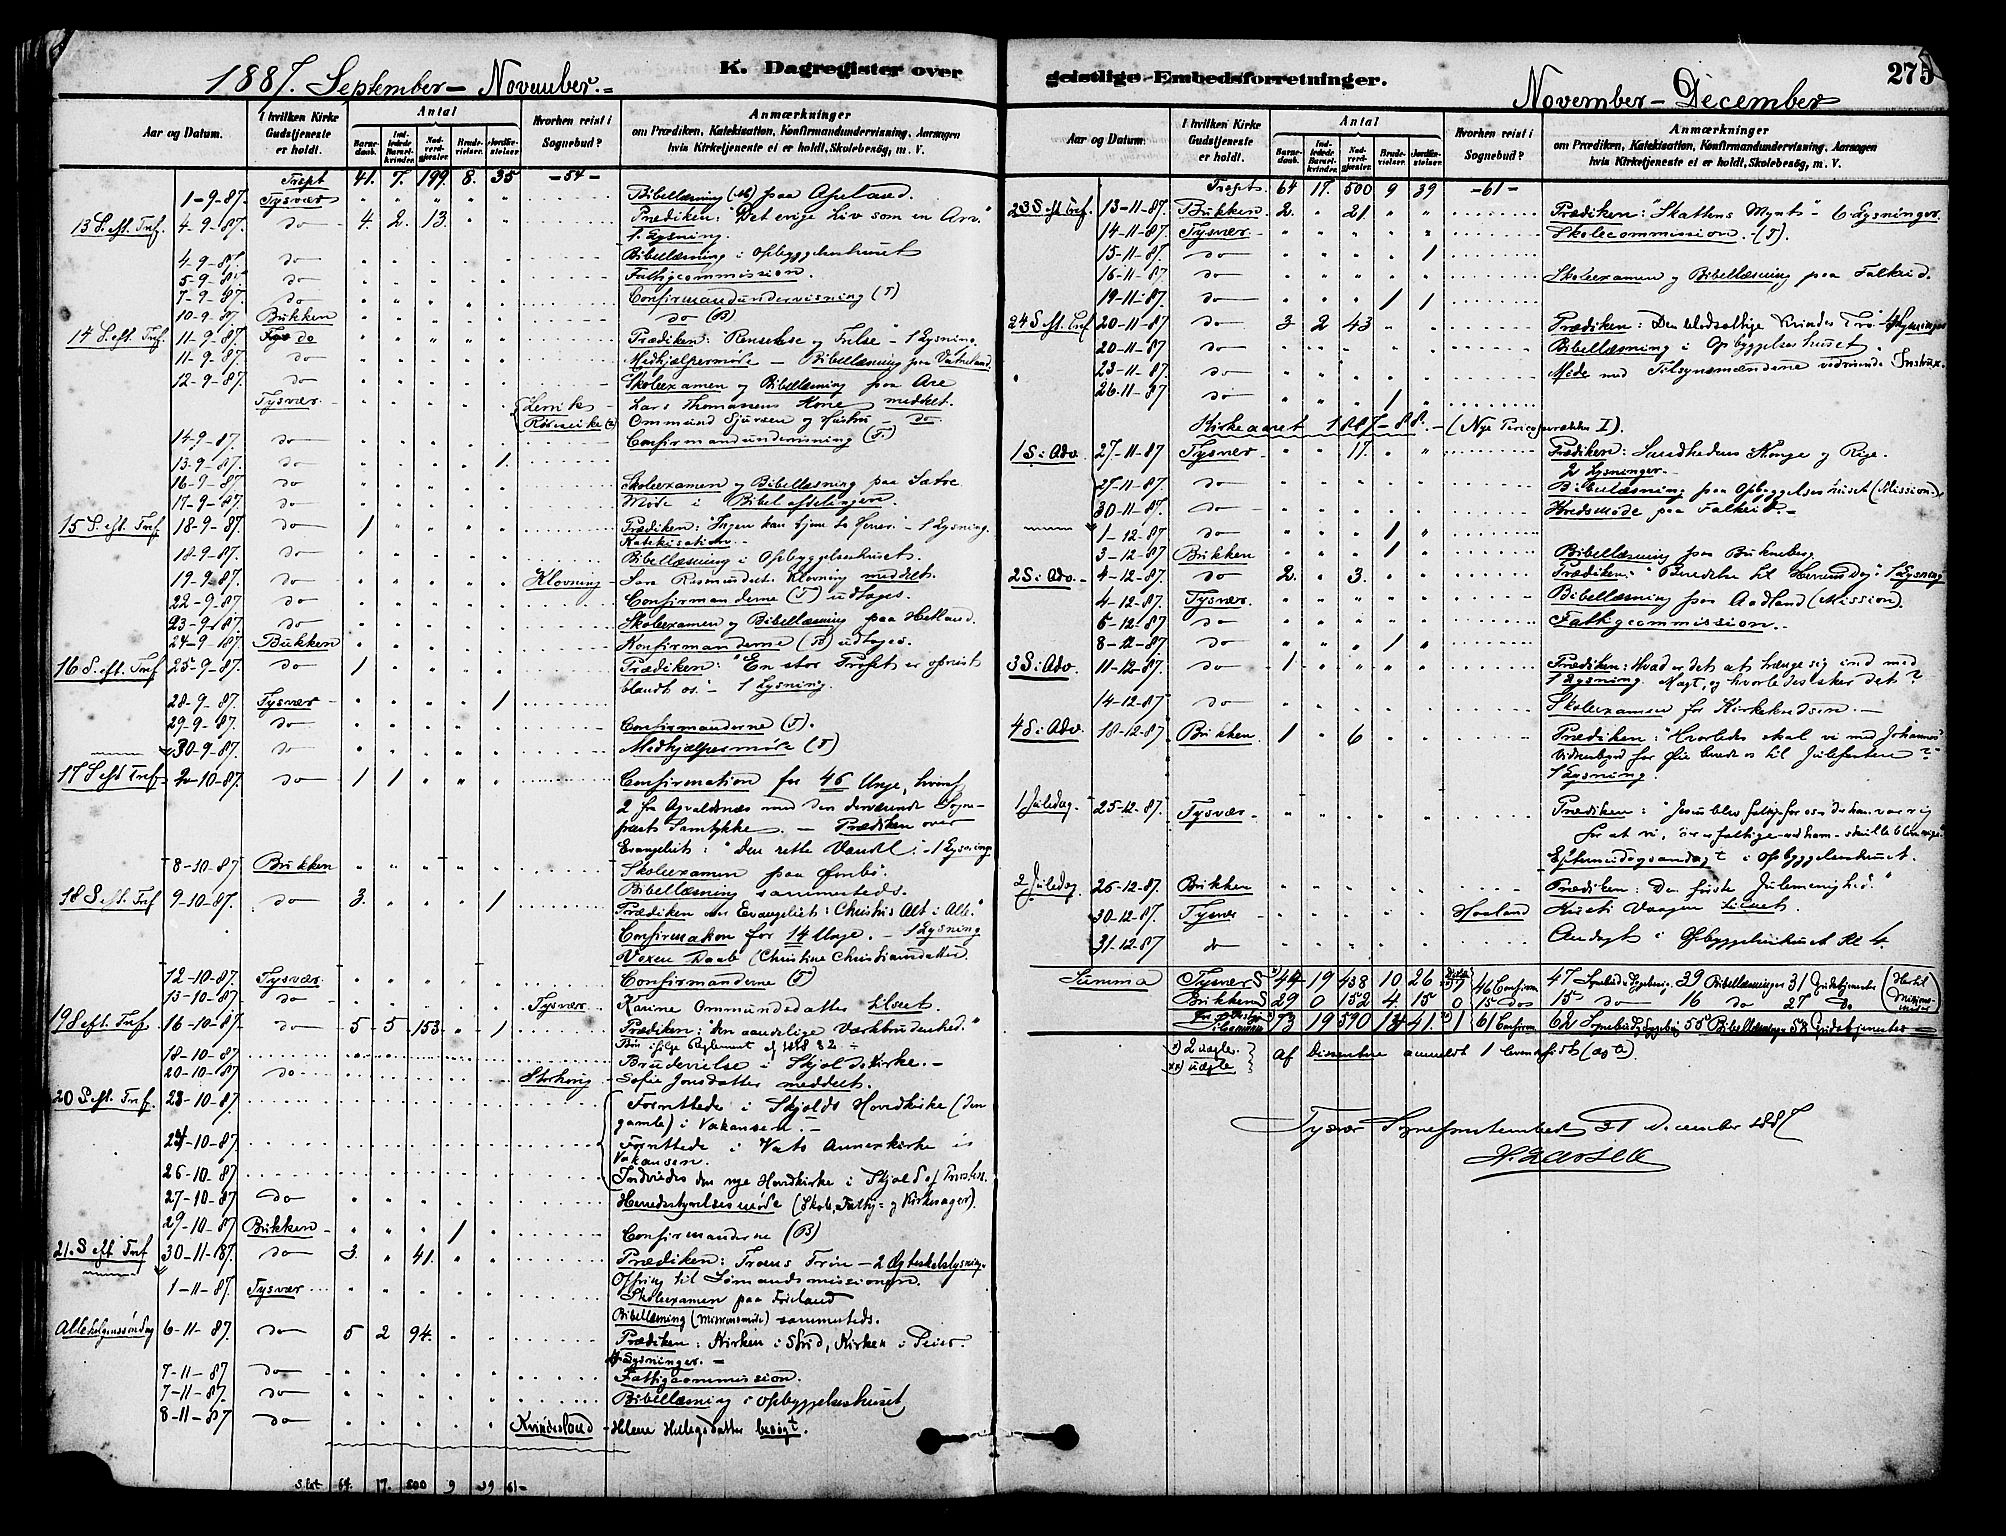 1887. September – November. =
K. Dagregister over
Aar og Datum. I hvilken Kirke Gudstjeneste er holdt. Antal Barnedaab. Indledede Barselkvinder. Nadverdgjæster. Brudevielser. Jordfæstelser. Hvorhen reist i Sognebud? Anmærkninger om Prædiken, Katekisation, Konfirmandundervisning, Aarsagen hvis Kirketjeneste ei er holdt, Skolebesög, m. V.
Trspt 41. 7. 199. 8. 35 –54–
1–9–87. Tysvær Bibellæsning (M) paa Apeland.
13 S. eft. Tref. 4–9–87. do 4. 2. 13. Prædiken: "Det evige Liv som en Arv."
1 Lysning.
4–9–87. do Bibellæsning i Opbyggelseshuset
5–9–87. do Fattigcommission.
7–9–87. do Confirmandundervisning (T)
10–9–87 Bukken do (B)
14 S. eft. Tref. 11–9–87. do Prædiken: Renselse og Frelse" – 1 Lysning.
11–9–87. do Medhjælpermöde – Bibellæsning paa Vatneland.
12–9–87. do Skoleexamen og Bibellæsning paa Are
Tysvær Lervik Lars Thomassens Kone meddelt.
Ommund Sjursen og Hustru – do
14–9–87. do Confirmandundervisning (T.)
13–9–87. do 1.
16–9–87 do Skoleexamen og Bibellæsning paa Sætre
17–9–87 do Möde i Bibelafdelingen.
15 S. eft. Tref 18–9–87. do 1 Prædiken: Ingen kan tjene to Herrer. – 1 Lysning.
Katekisation. –
18–9–87. do Bibellæsning i Opbyggelseshuset.
19–9–87. do Klovning – Sara Rasmusdatter Klovning meddelt.
22–9–87. do Confirmanderne (T) udtoges.
23–9–87 do Skoleexamen og Bibellæsning paa Hetland.
24–9–87 Bukken Konfirmanderne (B) udtoges.
16 S. eft. Tref 25–9–87. do 1 Prædiken: "En stor Profet er opreist
blandt os. – 1 Lysning.
28–9–87. Tysvær 1
29–9–87. do Confirmanderne (T).
30–9–87. do Medhjælpermöde (T)
17 S eft Tref 2–10–87. do 1 1 Confirmation for 46 Unge, hvoraf
2 fra Avaldsnæs med den derværende Sogne-
præsts Samtykke. – Prædiken over
Evangeliet: "Den rette Vandel." – 1 Lysning
8–10–87 Bukken Skoleexamen paa Ombö.
Bibellæsning sammesteds.
18 S eft. Tref 9–10–87. do 3. 1 Prædiken over Evangeliet: Christus Alt i Alle."
Confirmation for 14 Unge. – 1 Lysning
Voxen Daab (Christine Christiansdatter)
12–10–87. Tysvær Confirmanderne (T)
13–10–87 do Tysvær. Karine Ommundsdatter tilseet.
19 S eft. Tref 16–10–87. do 5 5 153. 1 Prædiken: "Den aandelige Værkbrudenhed."
18–10–87 Brudevielse i Skjolds Kirke. –
20–10–87 do Storhoug Sofie Jonsdatter meddelt.
20 S. eft. Tref. 23–10–87 Forrettede i Skjolds Hovedkirke (den
gamle) i Vakansen. –
24–10–87 Forrettede i Vats Annexkirke i
Vakansen.
26–10–87 Indviedes den nye Hovedkirke i Skjold af Provsten.
27–10–87 do Herredsstyrelsesmöde (Skole, Fattig- og Kirkesager).
29–10–87 Bukken 1 Confirmanderne (B)
21. S eft Tref 30–11–87. do 3. 41. Prædiken: Troens Trin – 2 Ægteskabslysning.
Offring til Sömandsmissionen.
1–11–87 Tysvær Skoleexamen paa Förland
Bibellæsning (Missionsmöde) sammesteds.
Allehelgenssöndag 6–11–87. do 5 2 94. Prædiken: Kirken i Strid, Kirken i Seier.
Lysninger. –
7–11–87 do Fattigcommission.
7–11–87. do Bibellæsning i Opbyggelseshuset
8–11–87 do Kvindesland – Helene Helgesdatter besögt.
64. 17. 500 9 39 61–
geistlige Embedsforretninger.
275
November – December
Aar og Datum. I hvilken Kirke Gudstjeneste er holdt. Antal Barnedaab. Indledede Barselkvinder. Nadverdgjæster. Brudevielser. Jordfæstelser. Hvorhen reist i Sognebud? Anmærkninger om Prædiken, Katekisation, Konfirmandundervisning, Aarsagen hvis Kirketjeneste ei er holdt, Skolebesög, m. V.
Trspt. 64 17. 500 9 39 –61–
23 S eft Tref. 13–11–87. Bukken 2. 21 Prædiken: "Skattens Mynt" – 6 Lysninger.
14–11–87. Tysvær. Skolecommission. (T).
15–11–87. do 1
16–11–87 do Skoleexamen og Bibellæsning paa Falkeid.
19–11–87. do 1 1
24 S eft. Tref 20–11–87. do 3 2 43 Prædiken: Den blodsottige Kvindes Tro. 4 Lysninger
20–11–87 do Bibellæsning i Opbyggelseshuset.
23–11–87. do Möde med Tilsynsmændene vedrörende Instrux.
26–11–87. do 1
Kirkeaaret 1887–88. – (Nye Pericoperækker I).
1 S. i Adv. 27–11–87 Tysvær 17. Prædiken: Sandhedens Konge og Rige.
2 Lysninger. –
27–11–87. do Bibellæsning paa Opbyggelseshuset (Mission).
30–11–87. do Kredsmöde paa Falkeid. –
1–12–87 do 1
3–12–87 Bukken 1 Bibellæsning paa Bukneberg.
2 S. i Adv. – 4–12–87. do 2. 3. Prædiken: "Beredelse til Herrens Dag" 1 Lysning
4–12–87. Tysvær. Bibellæsning paa Aadland (Mission).
6–12–87. do Fattigcommission. –
8–12–87. do 1 1
3 S. i Adv. 11–12–87. do 1 Prædiken: Hvad er det at trænge sig ind med
1 Lysning. Magt, og hvorledes sker det?
14–12–87. do Skoleexamen for Kirkekredsen. –
4 S. i Adv. 18–12–87. Bukken. 1 6 Prædiken: "Hvorledes skal vi med Johannes'
Vidnesbyrd for Öie berede os til Julefesten?"
1 Lysning
1 Juledag. 25–12–87. Tysvær. Prædiken: "Jesus blev fattig for os, der han var rig
for at vi, der er fattige ved ham skulle blive rige."
Eftermiddagsandagt i Opbyggelseshuset.
2 Juledag 26–12–87. Bukken Prædiken: Den förste Julemenighed."
30–12–87. Tysvær Haaland Kirsti Vaagen tilseet.
31–12–87 do Andagt i Opbyggelseshuset Kl. 4.
Summa Tysvær S 44 19 438 10 26 46 Confirm 47 39 Bibellæsninger 31 Gudstjenester
Bukken S 29 0 152 4. 15 0 15 do 15 do 16 do 27 do
73 19 590 14 41. 1 61 Confirm. 62 55 Bibellæsninger 58 Gudstjenester
x) 2 uægte. xx) uægte af Dissentere anmeldt 1 levendefödt (ægte)
Tysvær Sognepræstembede 31 December 1887